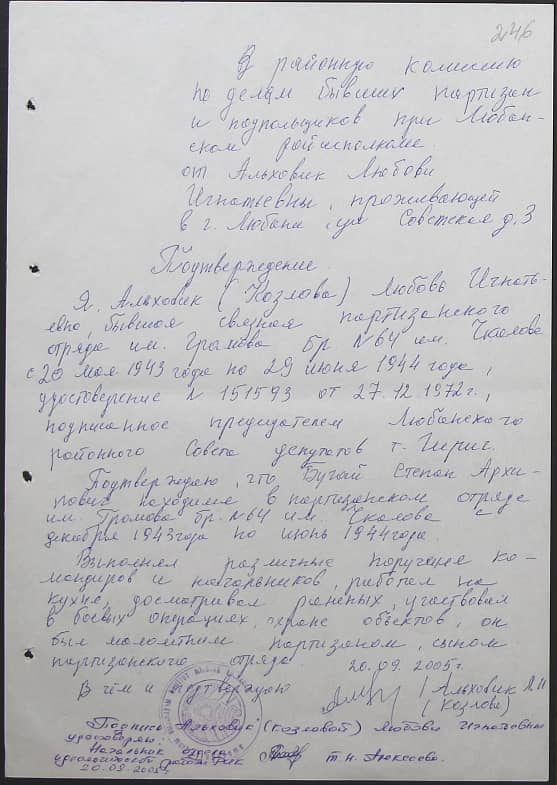 246
В районную комиссию
по делам бывших партизан
и подпольщиков при Любан-
ском райисполкоме
от Альховик Любови
Игнатьевны, проживающей
в г. Любани, ул Советская д. 3
Подтверждение.
Я, Альховик (Козлова) Любовь Игнать-
евна, бывшая связная партизанского
отряда им. Громова бр. №64 им. Чкалова
с 20 мая 1943 года по 29 июня 1944 года,
удостоверение № 151593 от 27.12.1972 г.,
подписанное председателем Любанского
районного Совета депутатов т.
Подтверждаю, что Бугай Степан Архи-
пович находился в партизанском отряде
им. Громова бр. №64 им. Чкалова с
декабря 1943 года по июнь 1944 года.
Выполнял различные поручения ко-
мандиров и начальников, работал на
кухне, досматривал раненых, участвовал
в боевых операциях, охране объектов, он
был малолетним партизаном, сыном
партизанского отряда. 20.09.2005 г.
В чём и подтверждаю
(Альховик Л.И
(Козлова)
Подпись Альховик (Козловой) Любови Игнатьевны
удостоверяю:
Начальник отдела
идеологической работы РИК
Т.Н. Алексеева
20.09.2005 г